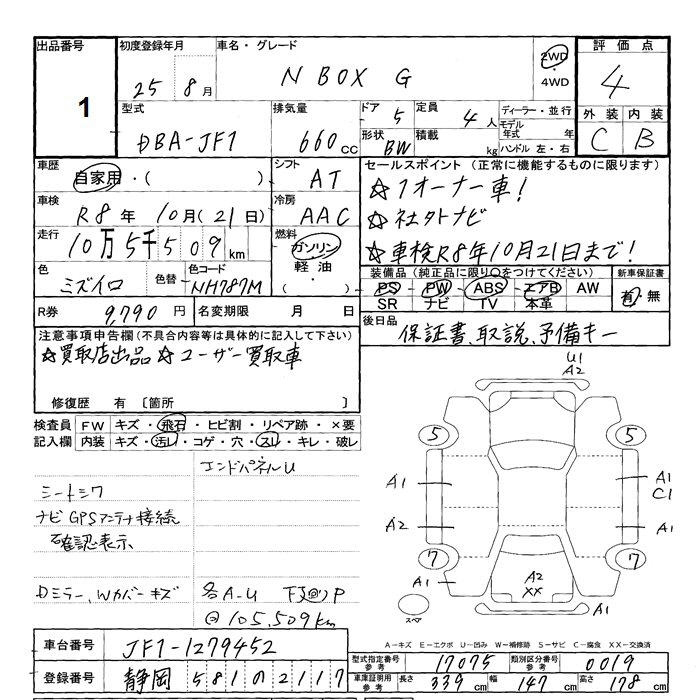 出品番号
1
初度登録年月
25 8月
車名・グレード
N BOX G
2WD
4WD
評価点
4
外装 内装
C B
型式
DBA-JF1
排気量
660cc
ドア 5
定員 4人
形状 BW
積載 kg
ディーラー・並行
モデル年式 年
ハンドル 左・右
車歴
自家用・( )
シフト
AT
車検
R8年10月(21日)
冷房
AAC
走行
10万5千509km
燃料
ガソリン
軽油
・( )
色
ミズイロ
色替
色コード
NH787M
R券 9,790円
名変期限 月 日
セールスポイント (正常に機能するものに限ります)
☆1オーナー車!
☆社外ナビ
☆車検R8年10月21日まで!
装備品(純正品に限り○をつけてください)
PS PW ABS エアB AW
SR ナビ TV 本革
新車保証書
有・無
後日品
保証書、取説、予備キー
注意事項申告欄(不具合内容等は具体的に記入して下さい)
☆買取店出品☆ユーザー買取車
修復歴 有〔箇所 〕
検査員記入欄
FW キズ・飛石・ヒビ割・リペア跡・×要
内装 キズ・汚レ・コゲ・穴・スレ・キレ・破レ
エンドパネルU
シートシワ
ナビGPSアンテナ接続
確認表示
Dミラー、Wカバーキズ
各A-U
@105,509km
U1
A2
5
5
A1
A1
C1
A2
A1
7
7
A1
A1
A2
XX
スペア
A-キズ E-エクボ U-凹み W-補修跡 S-サビ C-腐食 XX-交換済
車台番号
JF1-1279452
登録番号
静岡 581 の 2117
型式指定番号参考
17075
類別区分番号参考
0019
車庫証明用参考
長さ 339cm
幅 147cm
高さ 178cm